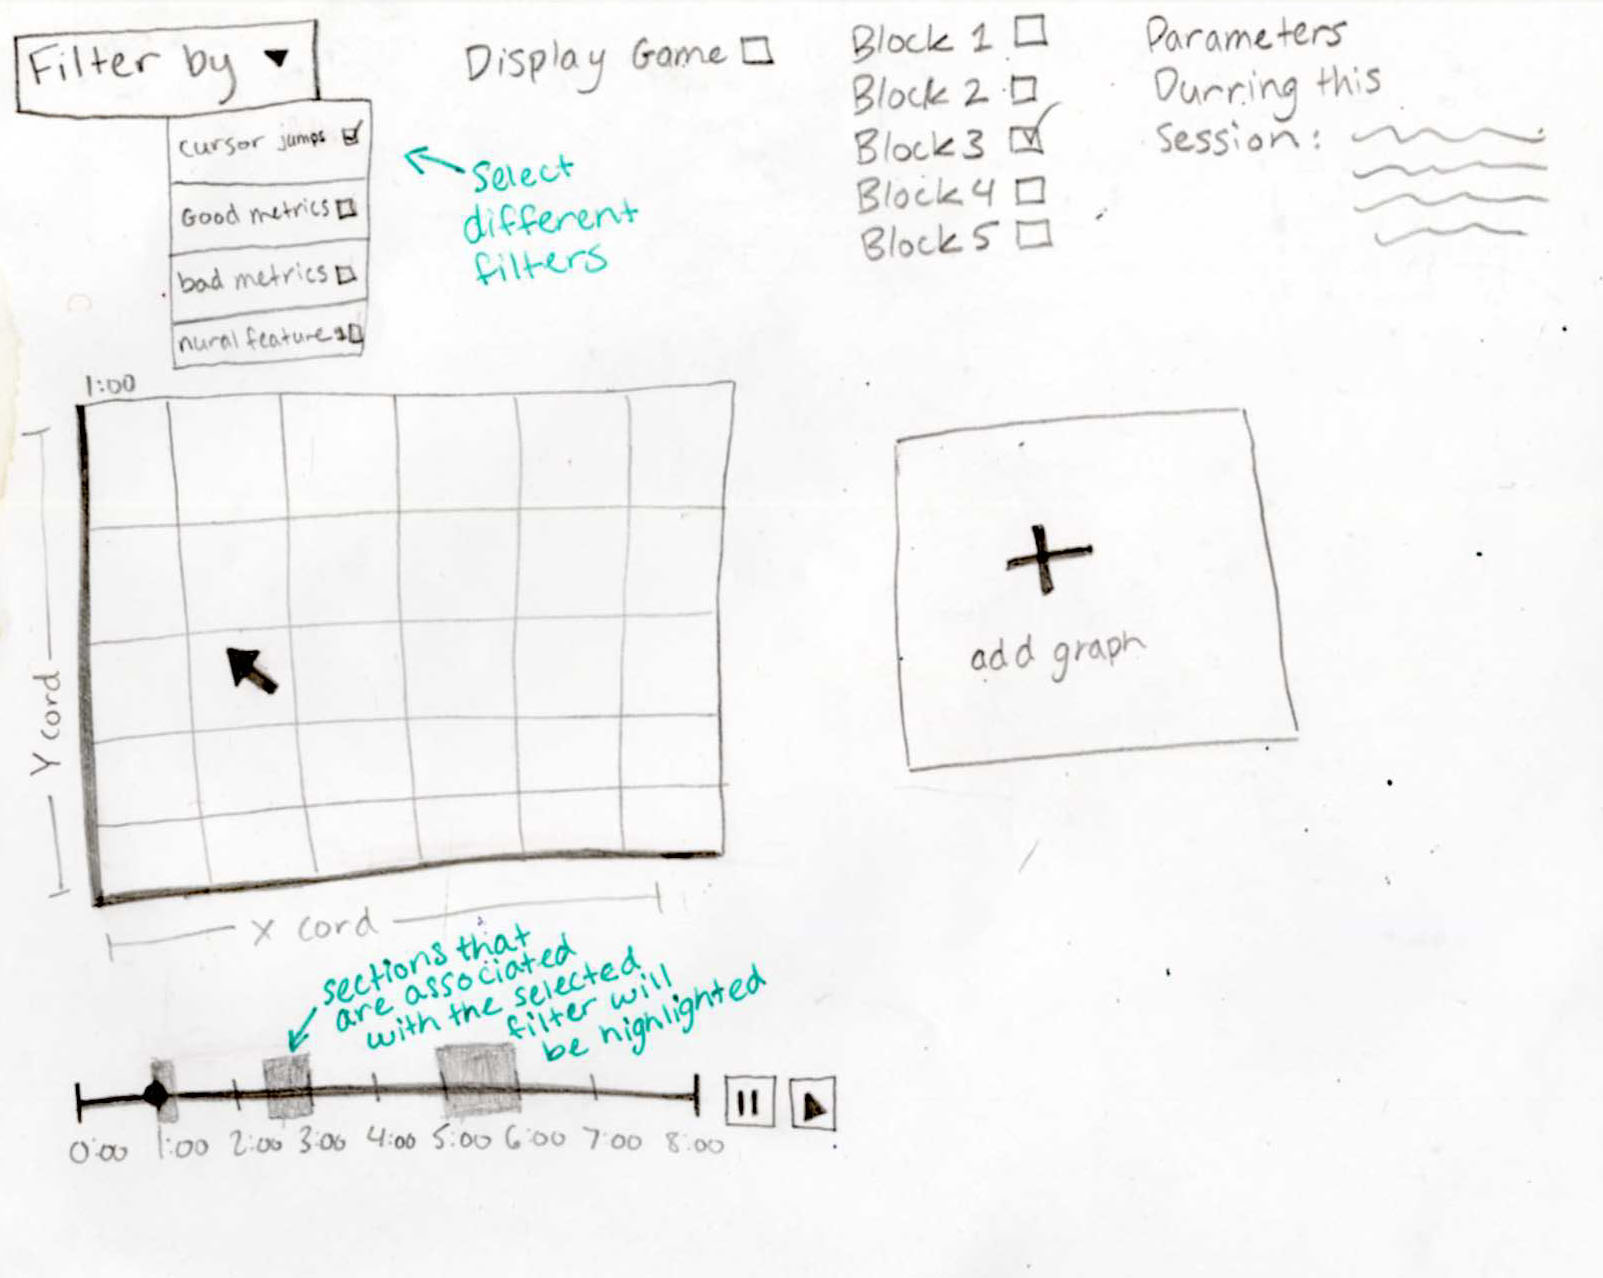 Filter by
cursor jumps
Good metrics
bad metrics
nural feature
Select
different
filters
Display Game
Block 1
Block 2
Block 3
Block 4
Block 5
Parameters
Durring this
Session:
1:00
Y cord
X cord
add graph
sections that
are associated
with the selected
filter will
be highlighted
0:00 1:00 2:00 3:00 4:00 5:00 6:00 7:00 8:00